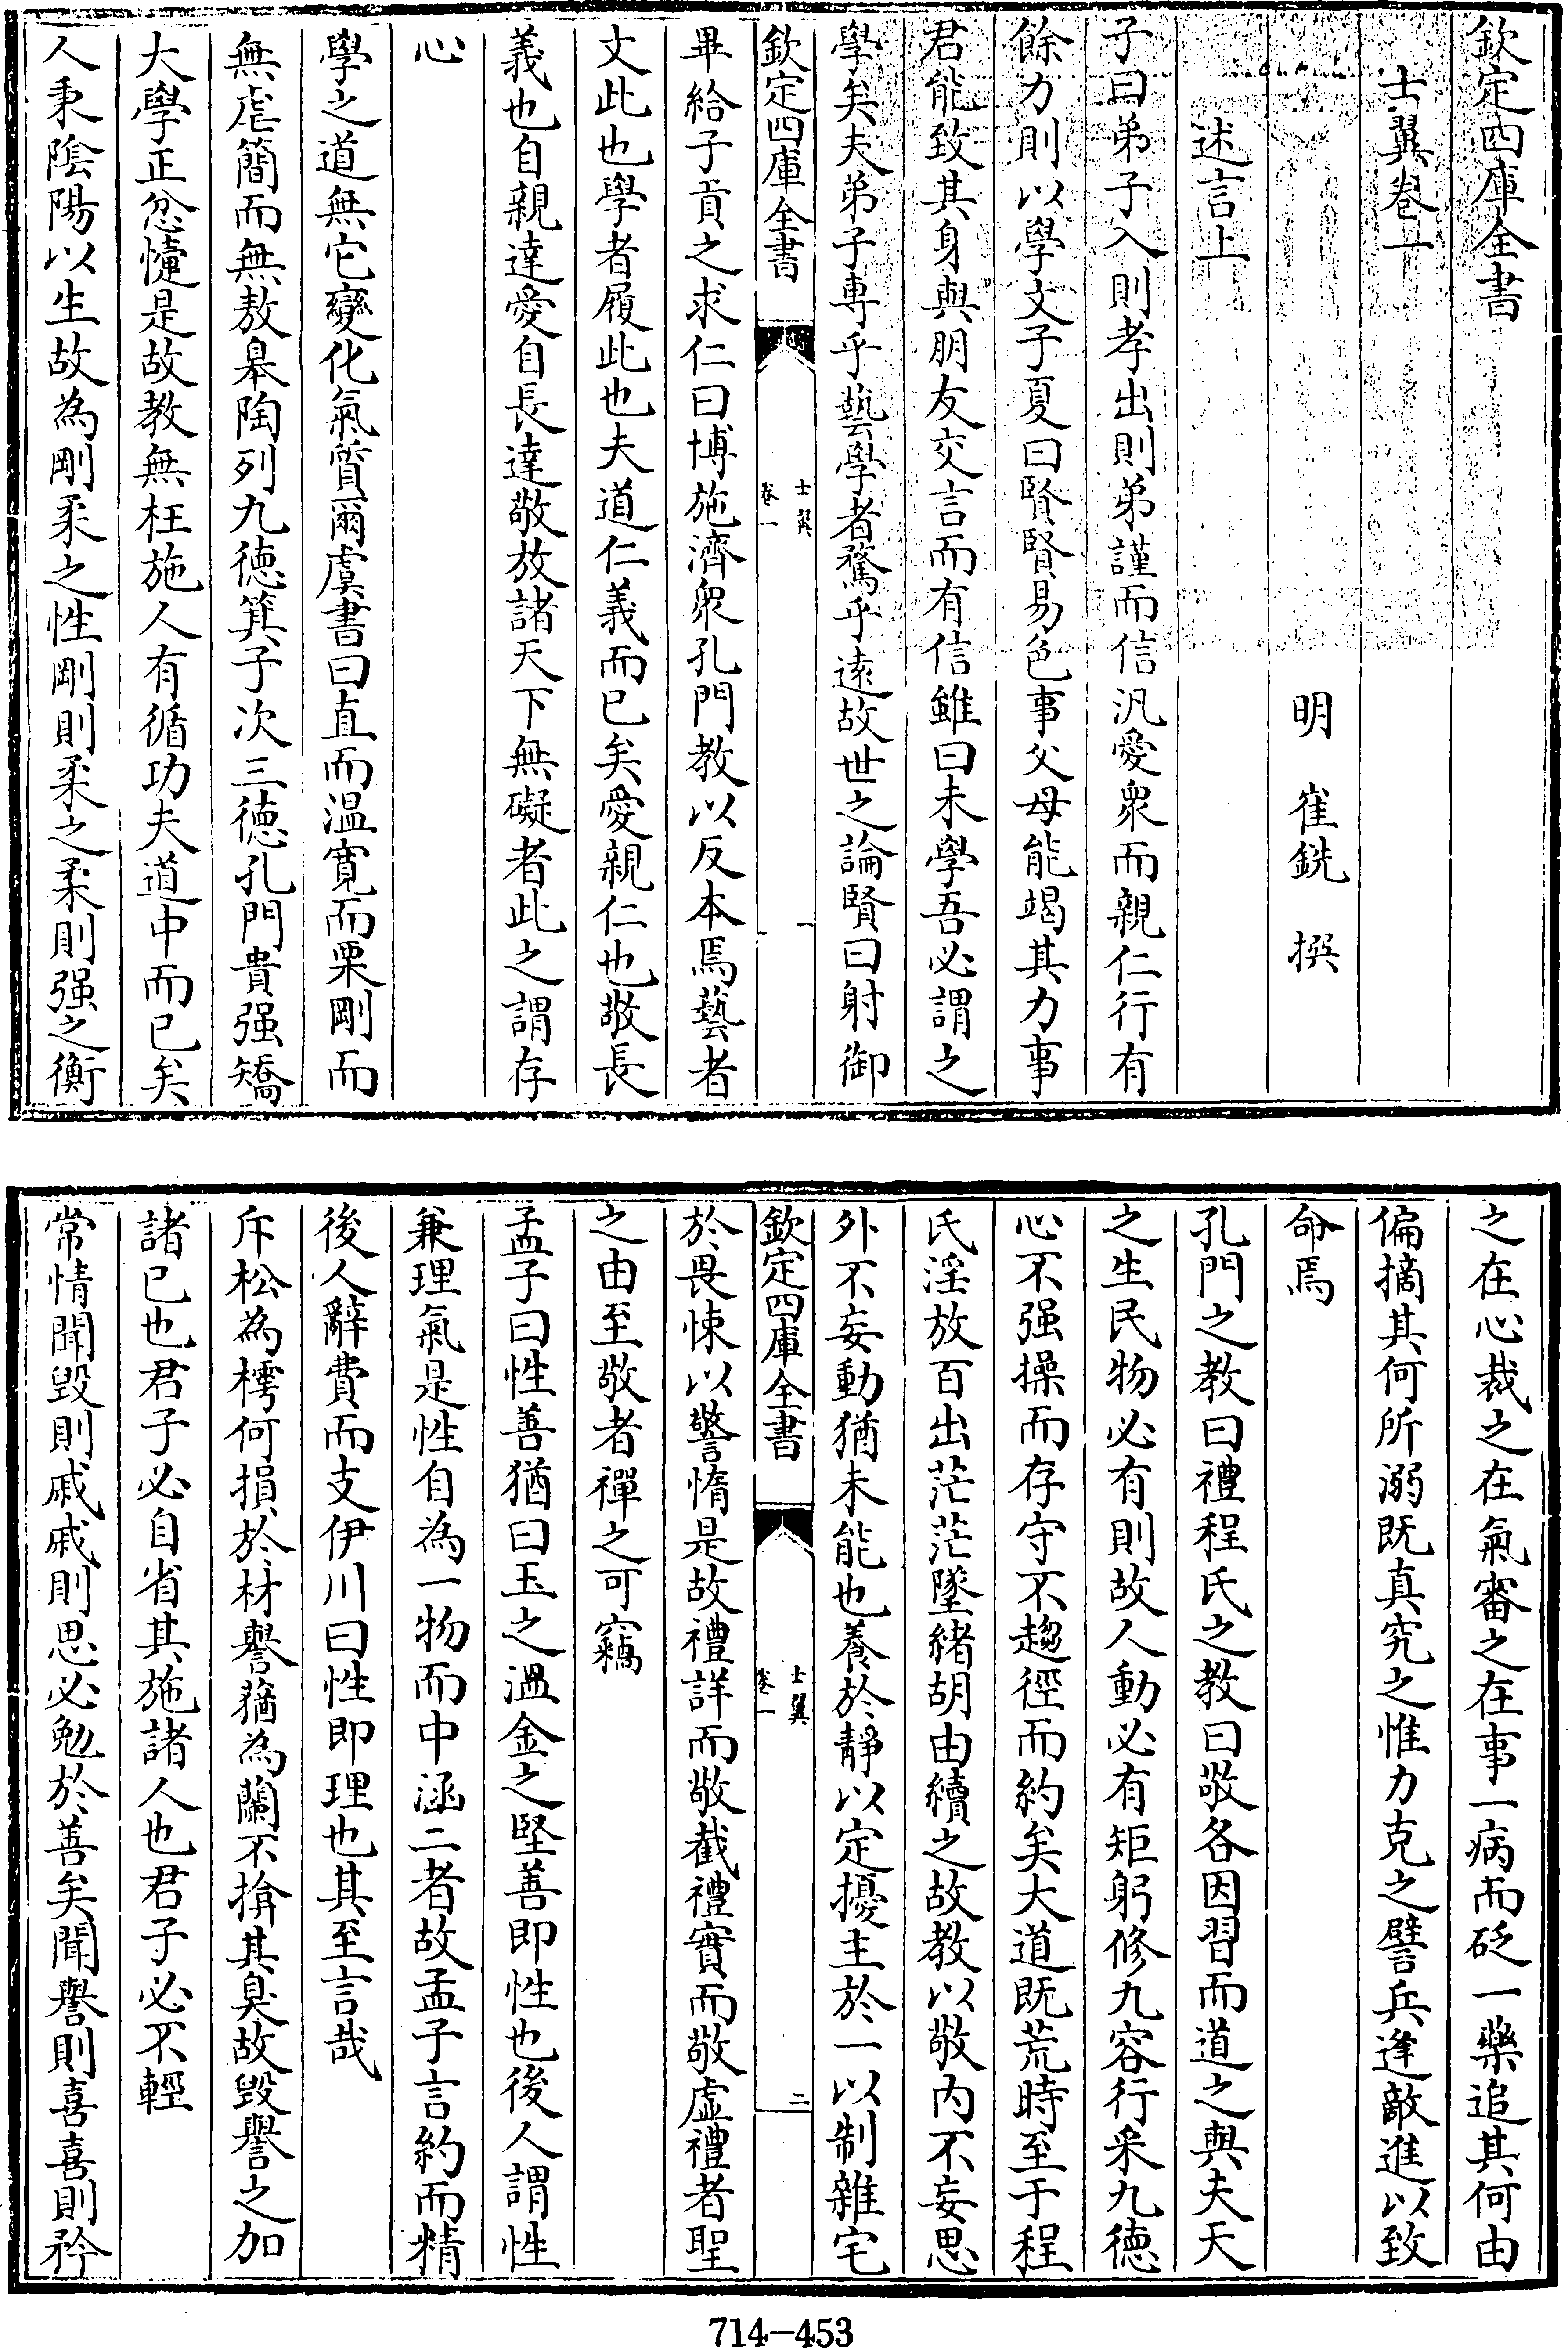 欽定四庫全書
士翼卷一
明 崔銑 撰
述言上
子曰弟子入則孝出則弟謹而信汎愛衆而親仁行有
餘力則以學文子夏曰賢賢易色事父母能竭其力事
君能致其身與朋友交言而有信雖曰未學吾必謂之
學矣夫弟子專乎藝學者騖乎逺故世之論賢曰射御
欽定四庫全書
士翼
卷一
一
畢給子貢之求仁曰博施濟衆孔門教以反本焉藝者
文此也學者履此也夫道仁義而已矣愛親仁也敬長
義也自親達愛自長達敬放諸天下無礙者此之謂存
心
學之道無它變化氣質爾虞書曰直而温寛而栗剛而
無虐簡而無敖臯陶列九徳箕子次三徳孔門貴强矯
大學正忿懥是故教無枉施人有循功夫道中而已矣
人秉隂陽以生故為剛柔之性剛則柔之柔則强之衡
之在心裁之在氣審之在事一病而砭一藥追其何由
偏摘其何所溺既真究之惟力克之譬兵逢敵進以致
命焉
孔門之教曰禮程氏之教曰敬各因習而道之與夫天
之生民物必有則故人動必有矩躬修九容行采九徳
心不强操而存守不趨徑而約矣大道既荒時至于程
氏淫放百出茫茫墜緒胡由續之故教以敬内不妄思
外不妄動猶未能也養於靜以定擾主於一以制雜宅
欽定四庫全書
士翼
卷一
二
於畏悚以警惰是故禮詳而敬截禮實而敬虚禮者聖
之由至敬者禪之可竊
孟子曰性善猶曰玉之温金之堅善即性也後人謂性
兼理氣是性自為一物而中涵二者故孟子言約而精
後人辭費而支伊川曰性即理也其至言哉
斥松為樗何損於材譽蕕為蘭不揜其臭故毁譽之加
諸已也君子必自省其施諸人也君子必不輕
常情聞毁則戚戚則思必勉於善矣聞譽則喜喜則矜
714-453